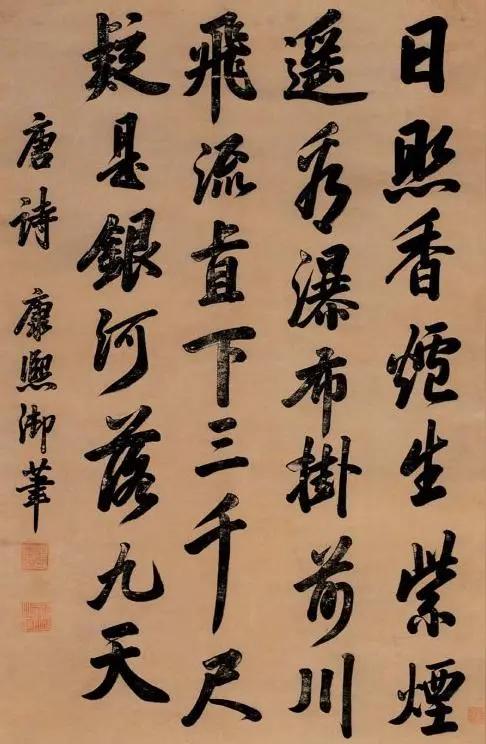 日照香爐生紫煙
遥看瀑布掛前川
飛流直下三千尺
疑是銀河落九天
唐詩 康熙御筆